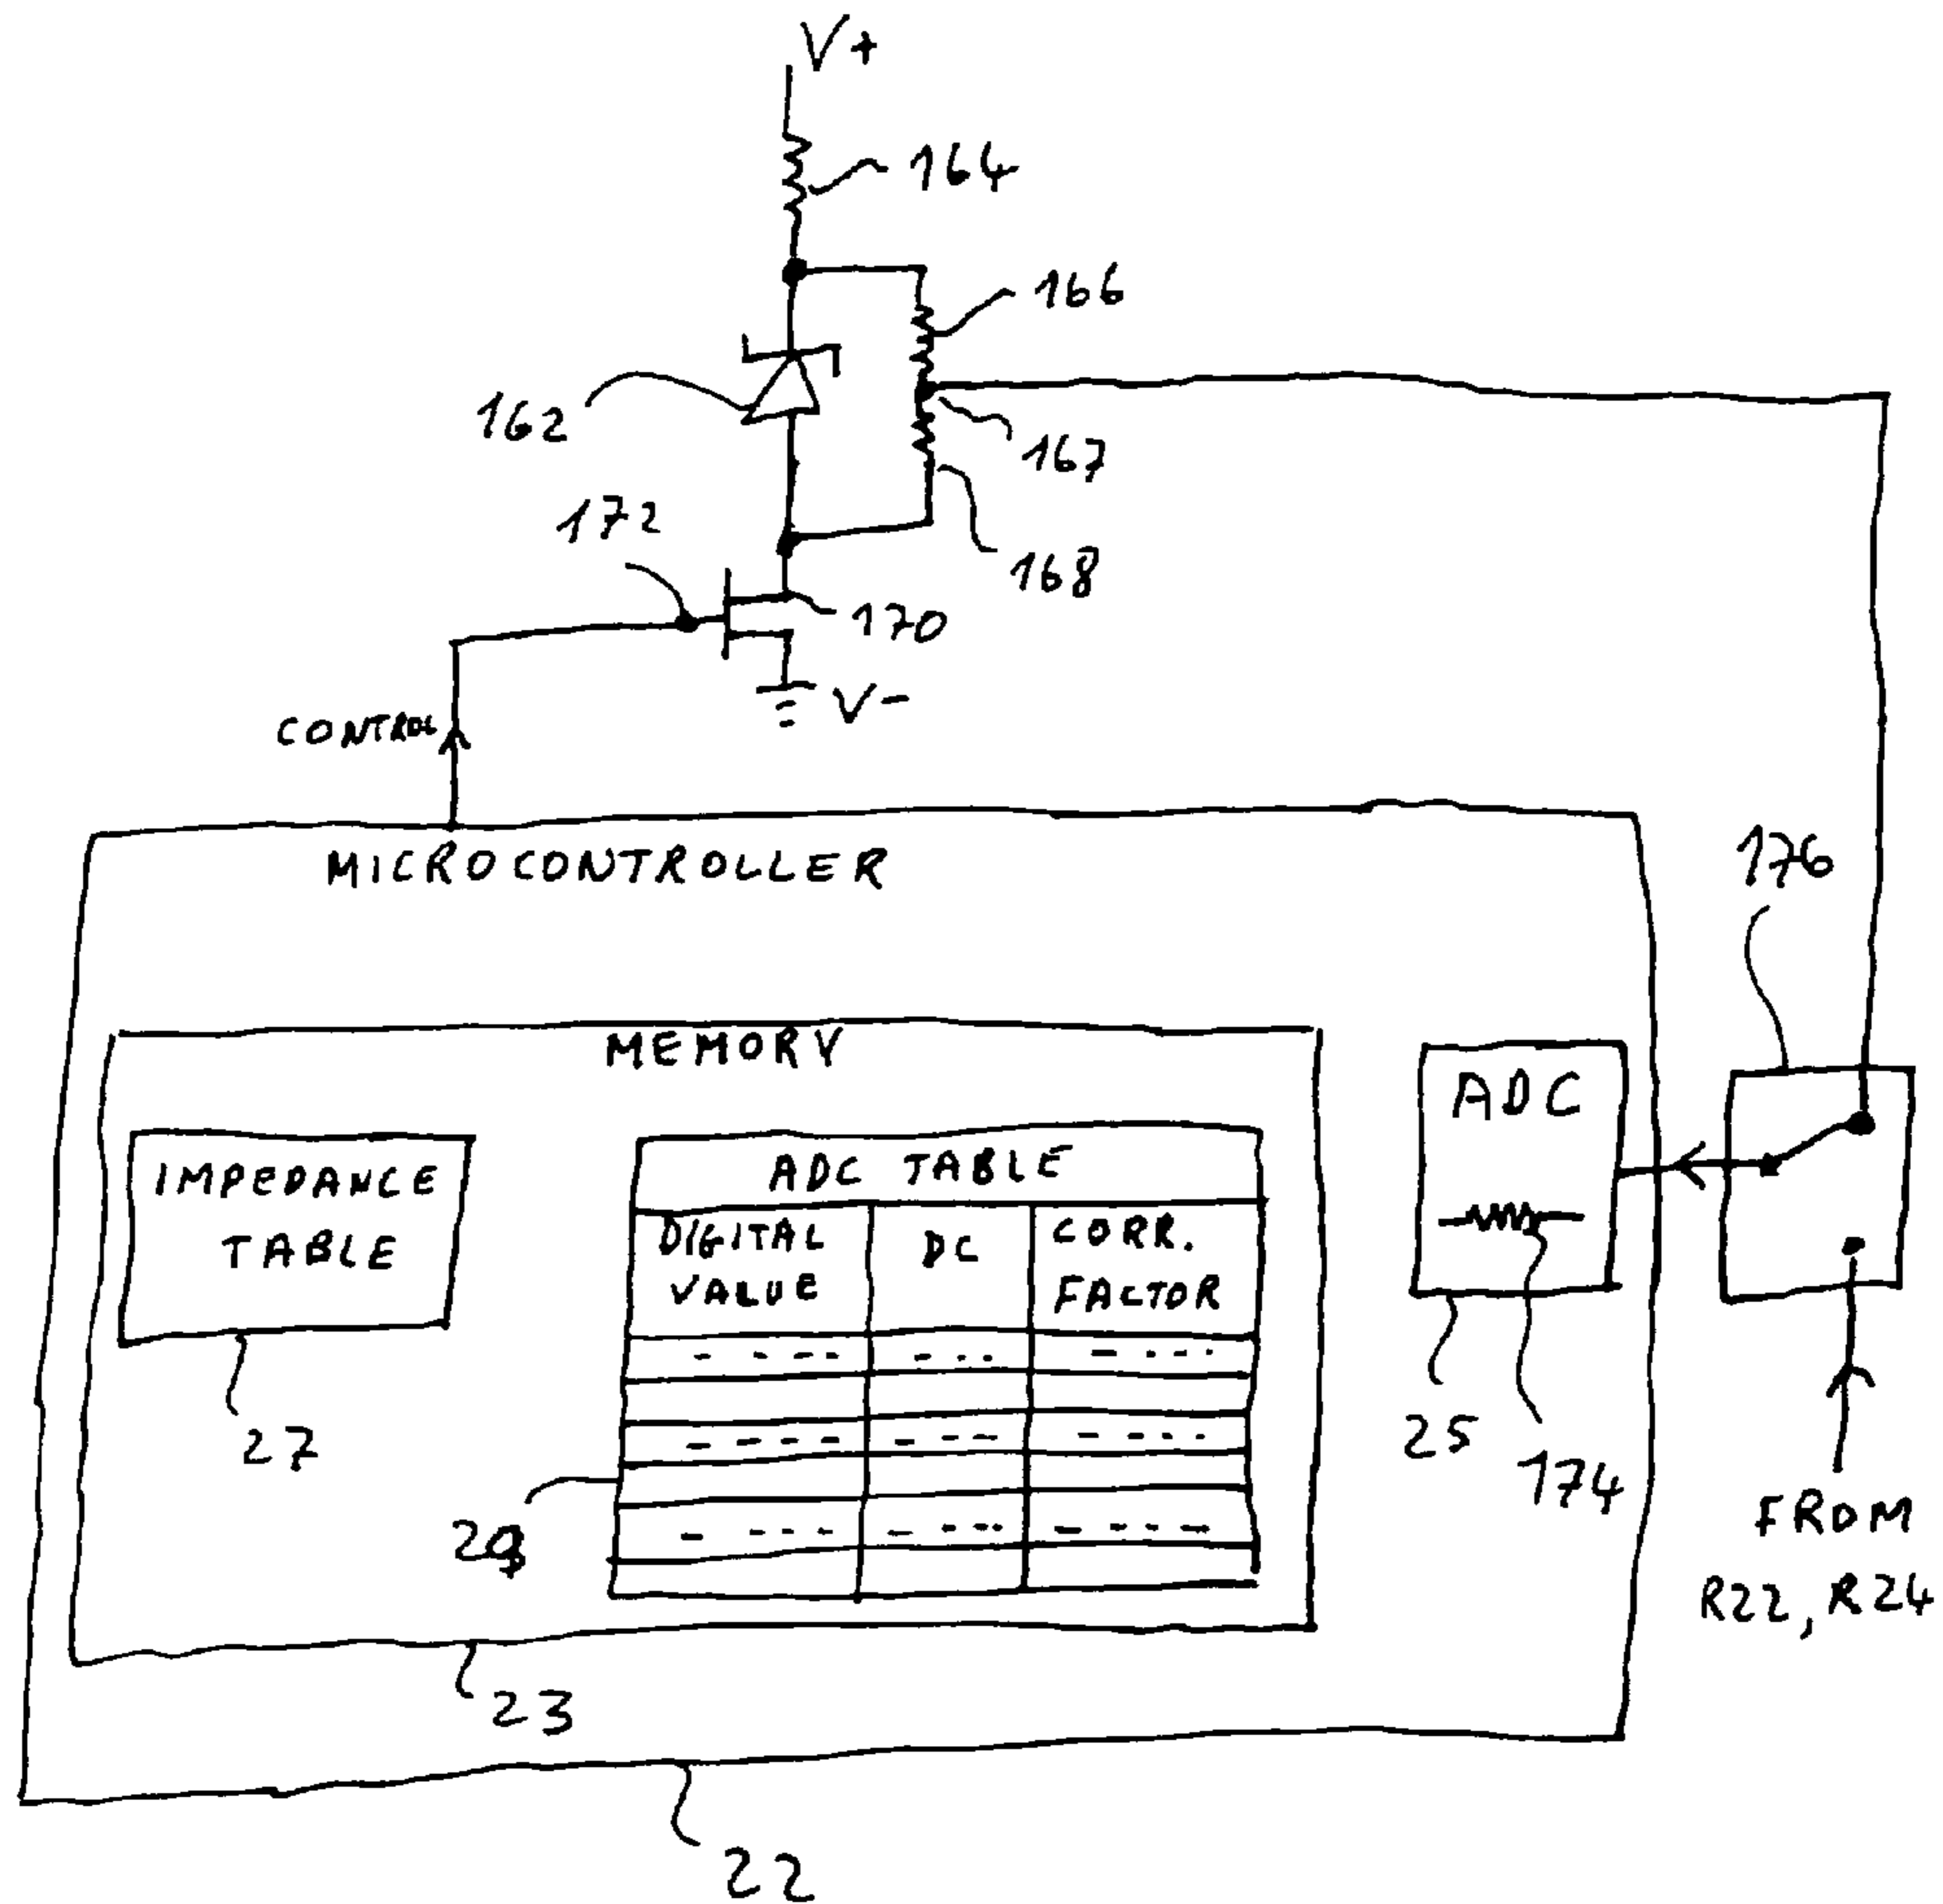 V+
164
166
162
167
172
168
170
V-
CONTROL
MICROCONTROLLER
176
MEMORY
ADC
IMPEDANCE
TABLE
ADC TABLE
DIGITAL
VALUE
DC
CORR.
FACTOR
27
25
174
29
FROM
R22, R24
23
22